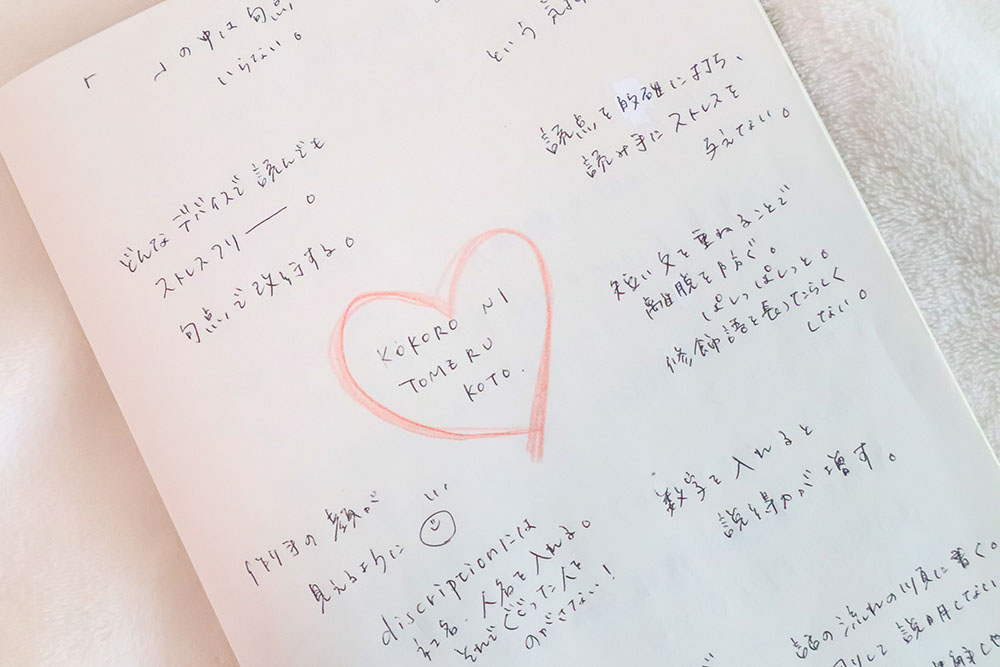 「　」の中は句点
いらない。
という気持
どんなデバイスで読んでも
ストレスフリー。
句点で改行する。
読点を的確に打ち、
読み手にストレスを
与えない。
KOKORO NI
TOMERU
KOTO.
短い文を重ねることで
離脱を防ぐ。
ぱしっぱしっと。
修飾語を長ったらしく
しない。
作り手の顔が
見えるように
discriptionには
社名、人名を入れる。
それでググった人を
のがさない!
数字を入れると
説得力が増す。
話の流れの順に書く。
して説明しない